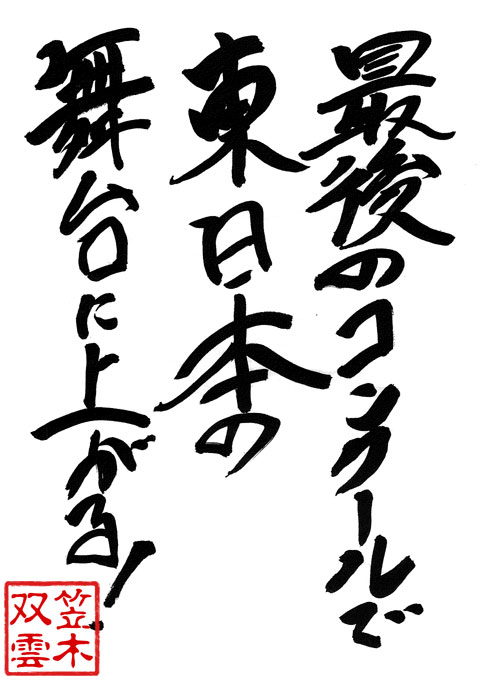 最後のコンクールで
東日本の
舞台に上がる!
笠木
双雲